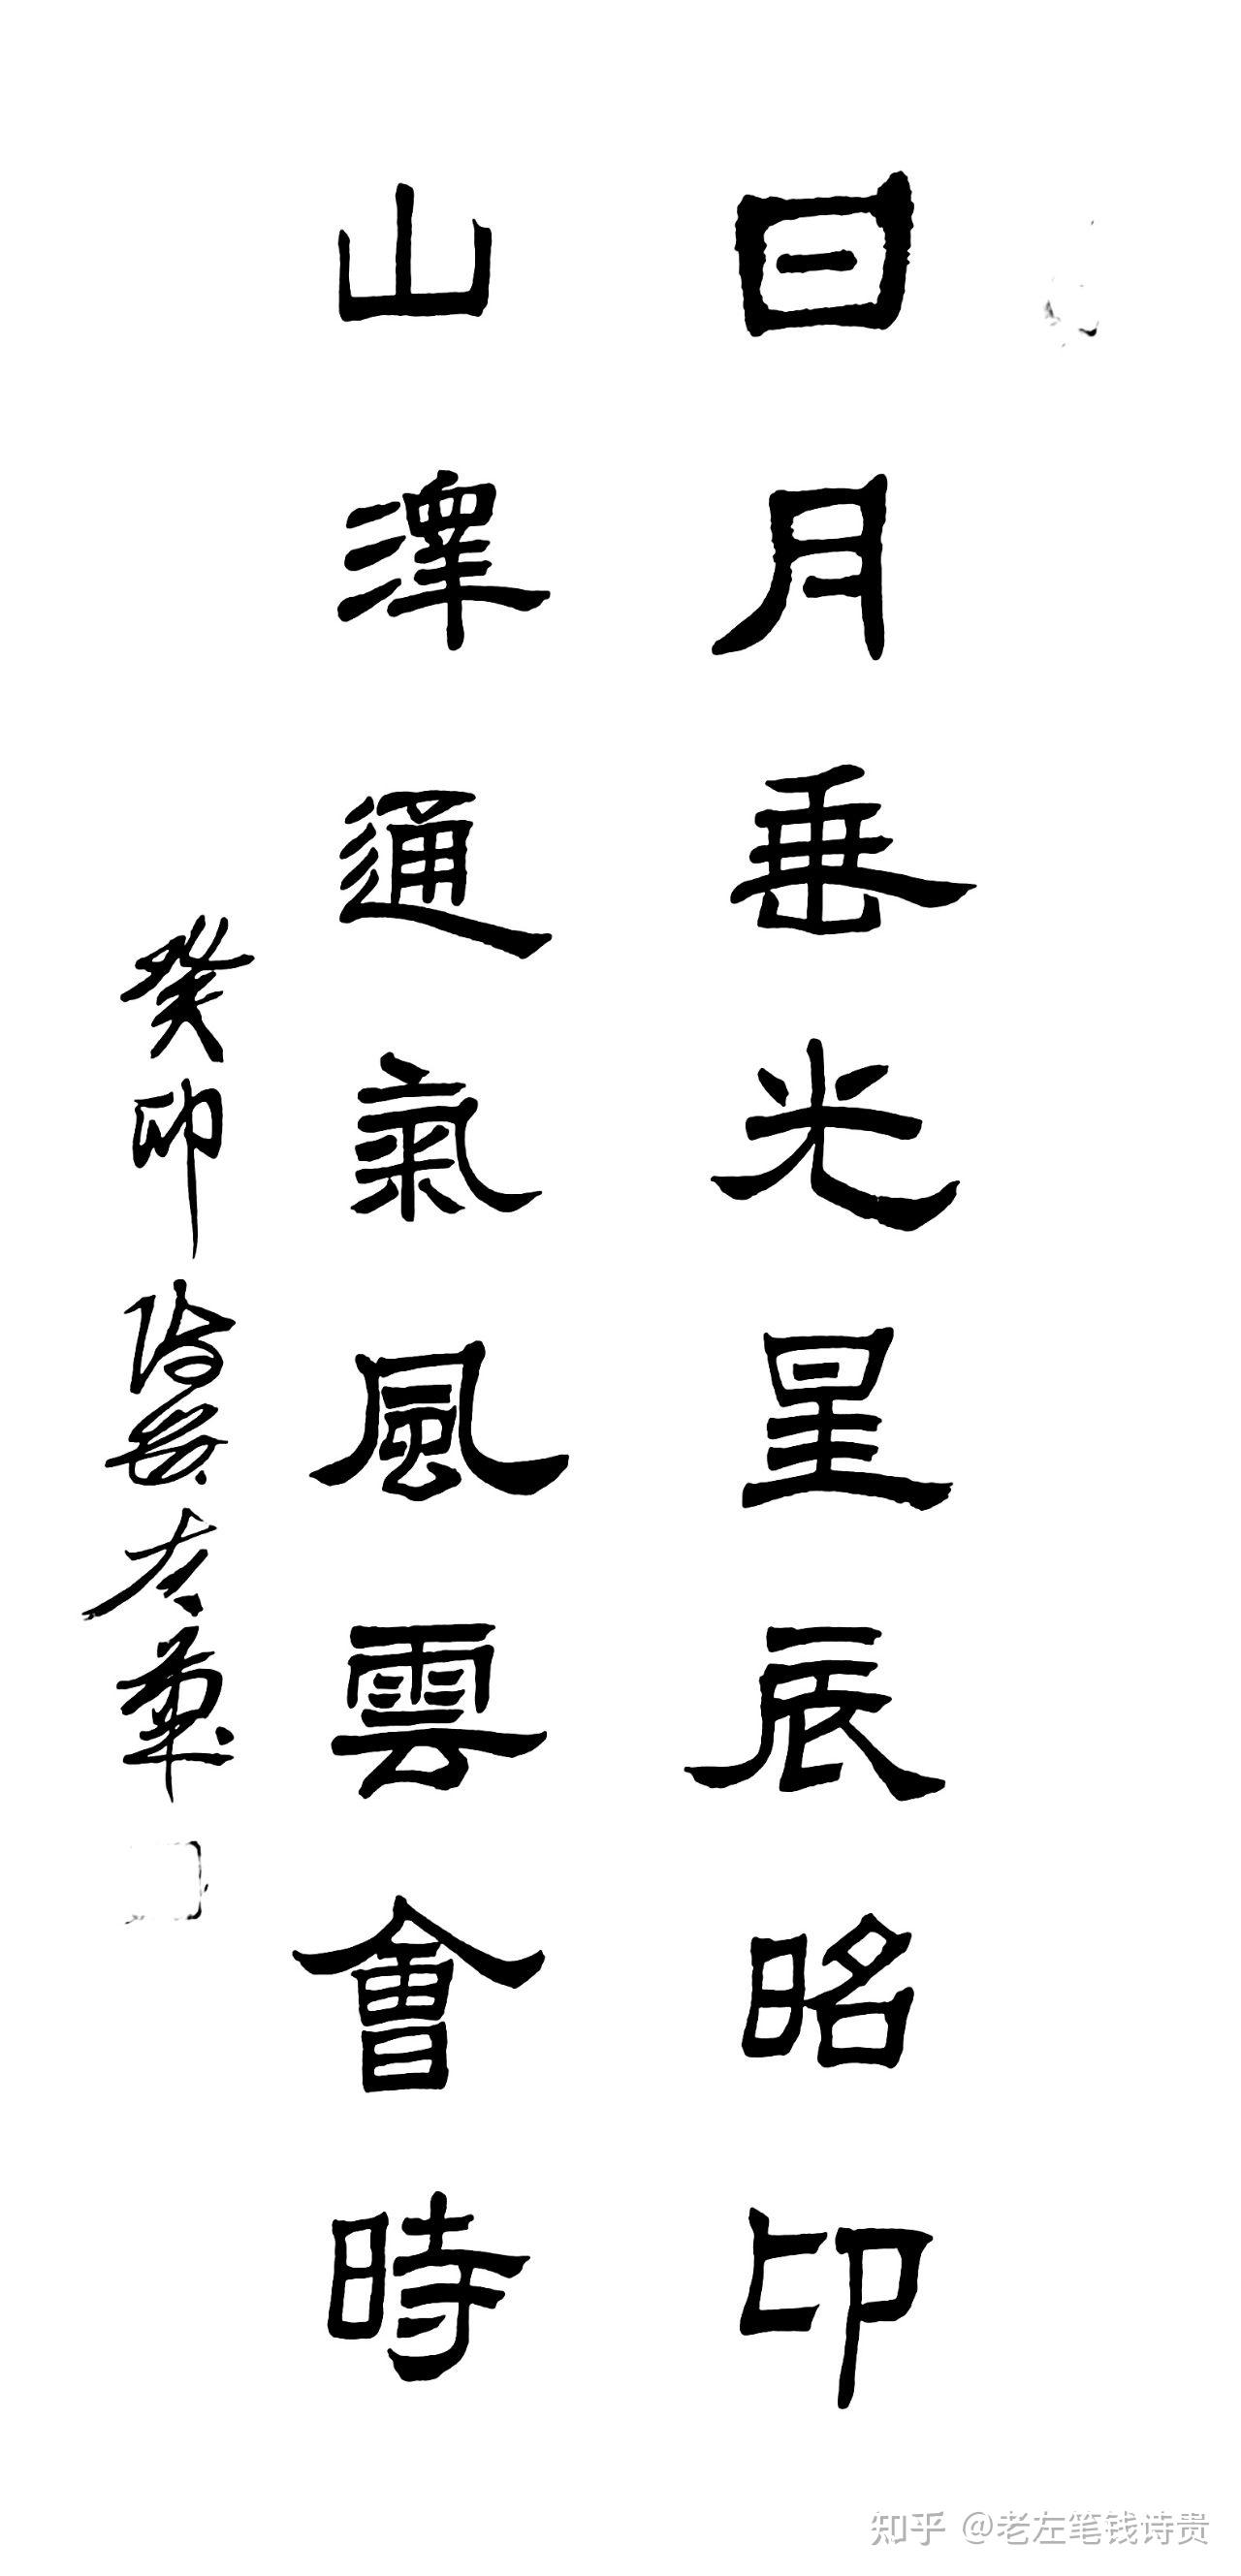 日月垂光星辰昭印
山澤通氣風雲會時
癸卯
左筆
知乎 @老左笔钱诗贵